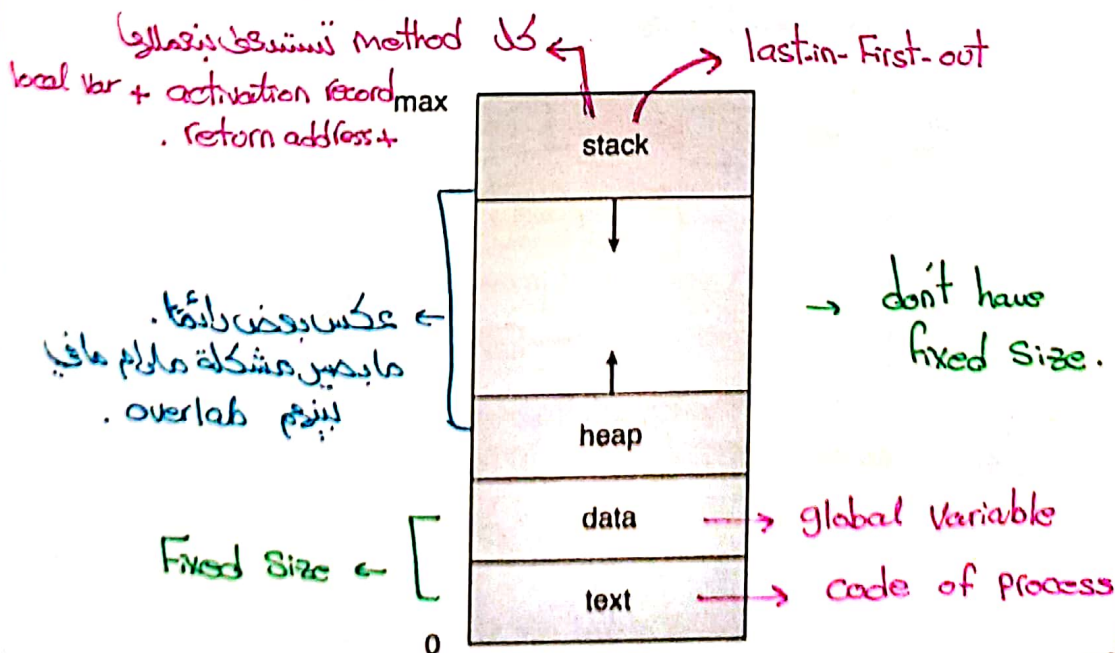 كل method تستدعى بنعملها
last-in-First-out
local var + activation record
. return address +
max
stack
عكس بعض دائمًا .
ما بصير مشكلة مادام ما في
بينهم overlab .
don't have
fixed size.
heap
data
global variable
Fixed Size
text
code of process
0